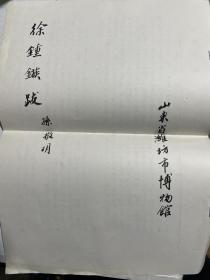 徐鍾鏃跋
孫敬明
山東省濰坊市博物館